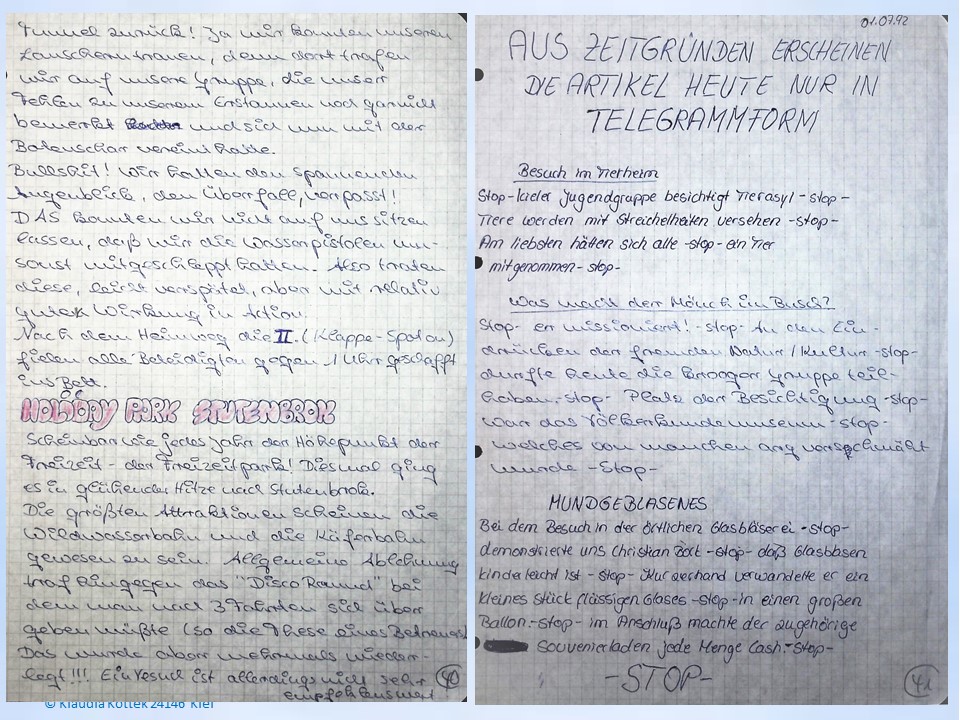 Tunnel zurück! Ja wir konnten unseren
Lauschern trauen, denn dort trafen
wir auf unsere Gruppe, die unser
Fehlen zu unserem Erstaunen noch garnicht
bemerkt und sich nun mit der
Botenschar vereint hatte.
Bullshit! Wir hatten den spannenden
Augenblick, den Überfall, verpasst!
DAS konnten wir nicht auf uns sitzen
lassen, daß wir die Wasserpistolen um-
sonst mitgeschleppt hatten. Also traten
diese, leicht verspätet, aber mit relativ
guter Wirkung in Action.
Nach dem Heimweg die II. (Klappe-Spaten)
fielen alle Beteiligten gegen 1 Uhr geschafft
ins Bett.
HOLIDAY PARK STUTENBROK
Scheinbar wie jedes Jahr der Höhepunkt der
Freizeit - der Freizeitpark! Diesmal ging
es in glühender Hitze nach Stutenbrok.
Die größten Attraktionen scheinen die
Wildwasserbahn und die Käferbahn
gewesen zu sein. Allgemeine Ablehnung
traf hingegen das "Disco Round" bei
dem man nach 3 Fahrten sich über
geben müßte (so die These eines Betreuers)
Das wurde aber mehrmals wieder-
legt!!! Ein Besuch ist allerdings nicht sehr
empfehlenswert
40
01.07.92
AUS ZEITGRÜNDEN ERSCHEINEN
DIE ARTIKEL HEUTE NUR IN
TELEGRAMMFORM
Besuch im Tierheim
Stop-kieler Jugendgruppe besichtigt Tierasyl -stop-
Tiere werden mit Streichelheiten versehen -stop-
Am liebsten hätten sich alle -stop- ein Tier
mitgenommen - stop-
Was macht der Mönch im Busch?
Stop- er missioniert! -stop- An den Ein-
drücken der fremden Natur / Kultur -stop-
durfte heute die Krooger Gruppe teil-
haben -stop- Platz der Besichtigung -stop-
war das Völkerkundemuseum -stop-
welches von manchen arg verschmäht
wurde -Stop-
MUNDGEBLASENES
Bei dem Besuch in der örtlichen Glasbläserei -stop-
demonstrierte uns Christian Bort -stop- daß Glasblasen
kinderleicht ist -stop- Kurzerhand verwandelte er ein
kleines Stück flüssigen Glases -stop- in einen großen
Ballon -stop- im Anschluß machte der zugehörige
Souvenierladen jede Menge Cash -Stop-
-STOP-
41
© Klaudia Kottek 24146 Kiel